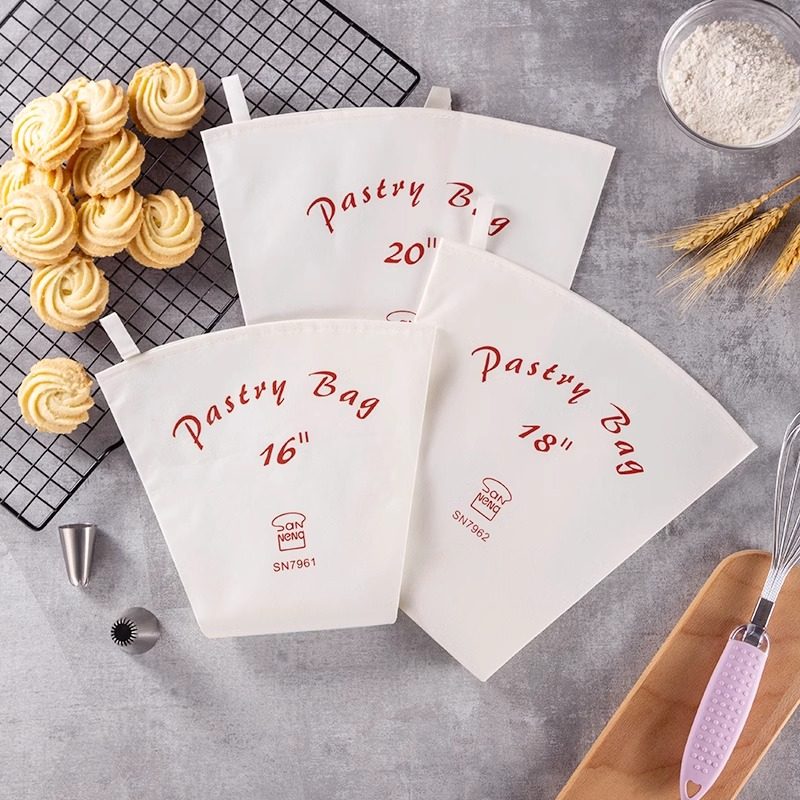 Pastry Bag
20"
Pastry Bag
16"
SAN
NENG
SN7961
Pastry Bag
18"
SAN
NENG
SN7962